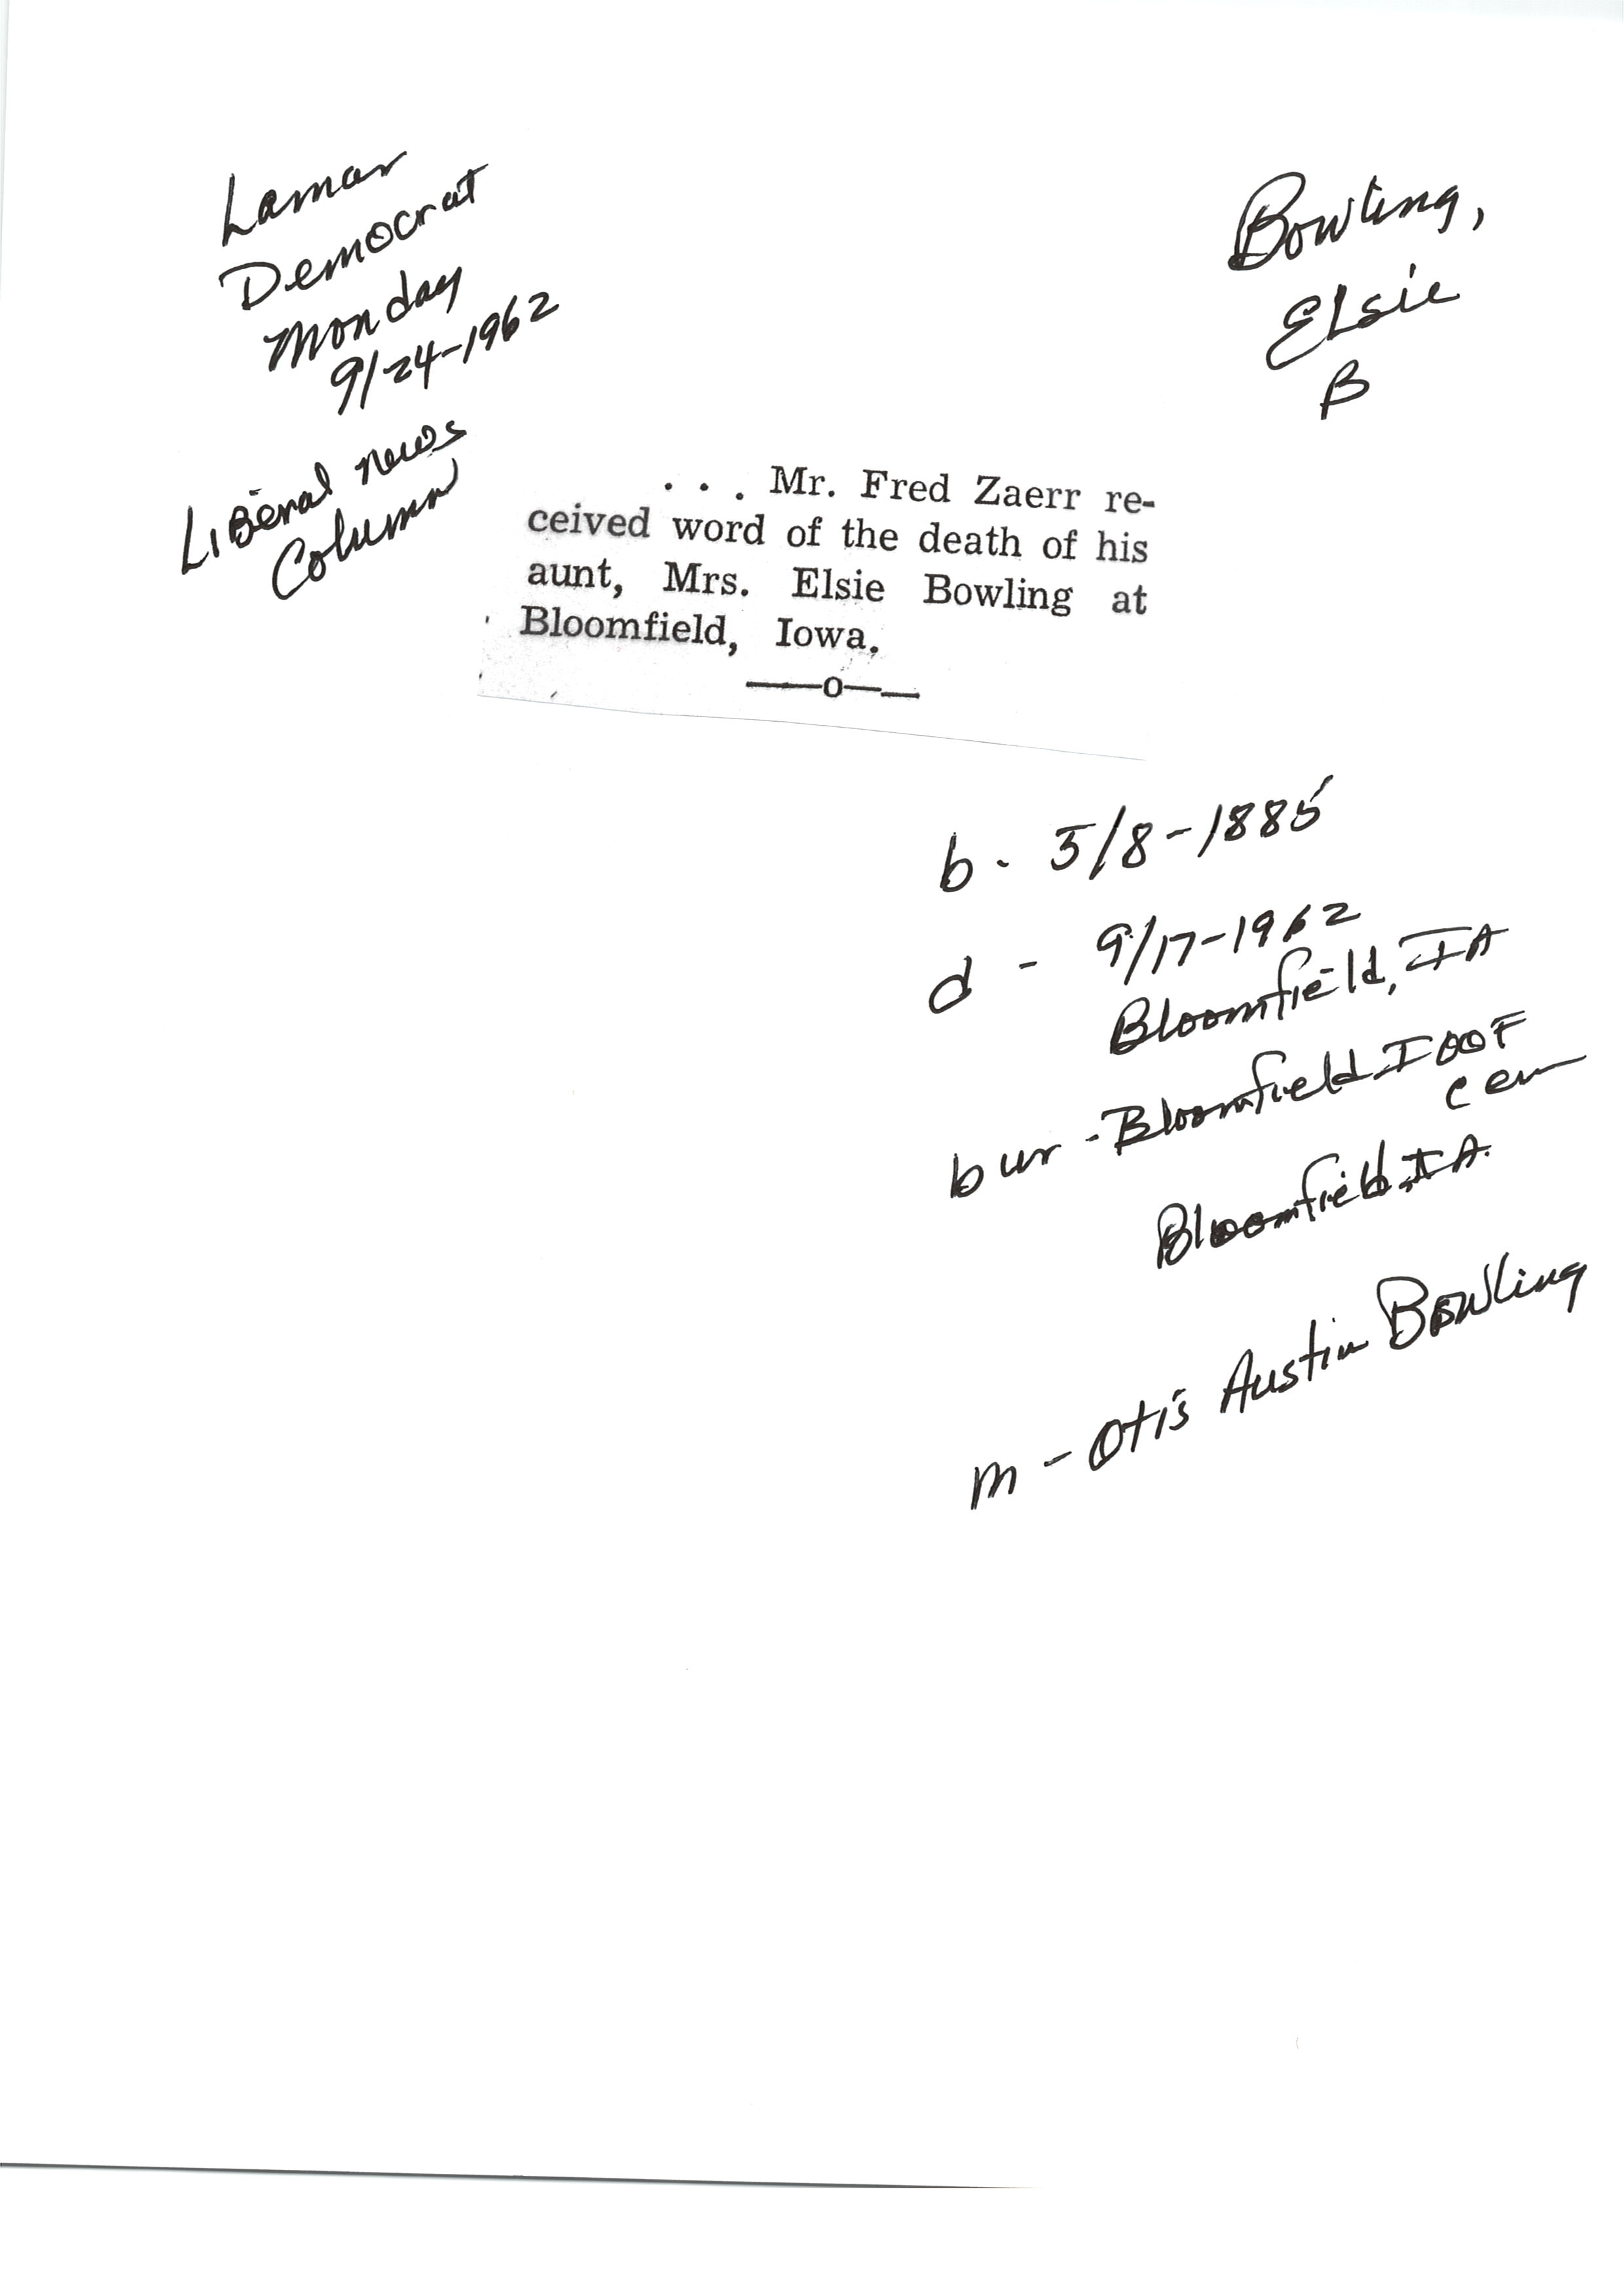 Lamar
Democrat
Monday
9/24-1962
Liberal News
Column
Bowling,
Elsie
B
. . . Mr. Fred Zaerr re-
ceived word of the death of his
aunt, Mrs. Elsie Bowling at
Bloomfield, Iowa.
——o——
b - 5/8-1885
d - 9/17-1962
Bloomfield, IA
bur - Bloomfield IOOF
cem
Bloomfield IA.
m - Otis Austin Bowling